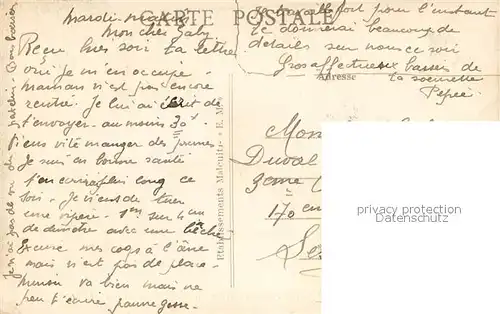 CARTE POSTALE
Mardi
Mon cher Gaby
Reçu hier soir ta lettre
oui je m'en occupe.
maman n'est pas encore
rentrée. Je lui ai dit de
t'envoyer au moins 30f.
Viens vite manger des prunes
Je suis en bonne santé
t'en écrirai plus long ce
soir. Je viens de tuer
une vipère. 1m sur 4 cm
de diamètre avec une bêche
Excuse mes coqs à l'âne
mais n'est pas de place.
va bien mais ne
peu t'écrire pauvre gosse.
Je n'ai pas de vue de
fort pour l'instant
te donnerai beaucoup de
détails sur nous ce soir
Gros affectueux baisers de
ta soeurette
Pépée
Adresse
Etablissements Malcuit
Duval
3eme
170
privacy protection
Datenschutz